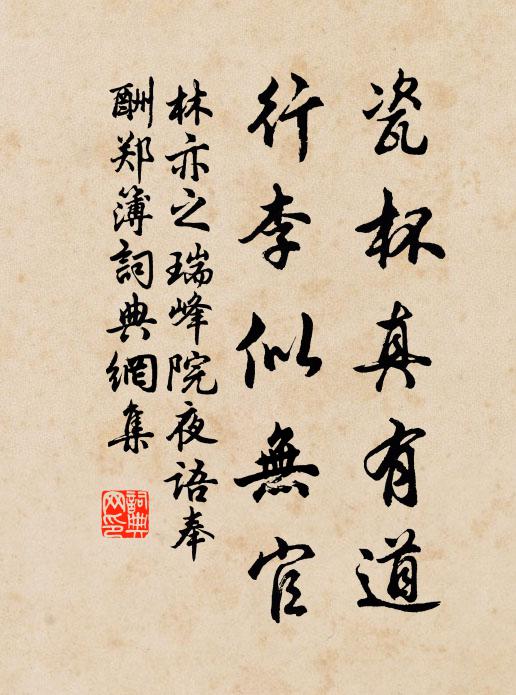 瓷杯真有道
行李似無官
林亦之瑞峰院夜语奉
酬郑簿詞典網集
詞典
网印